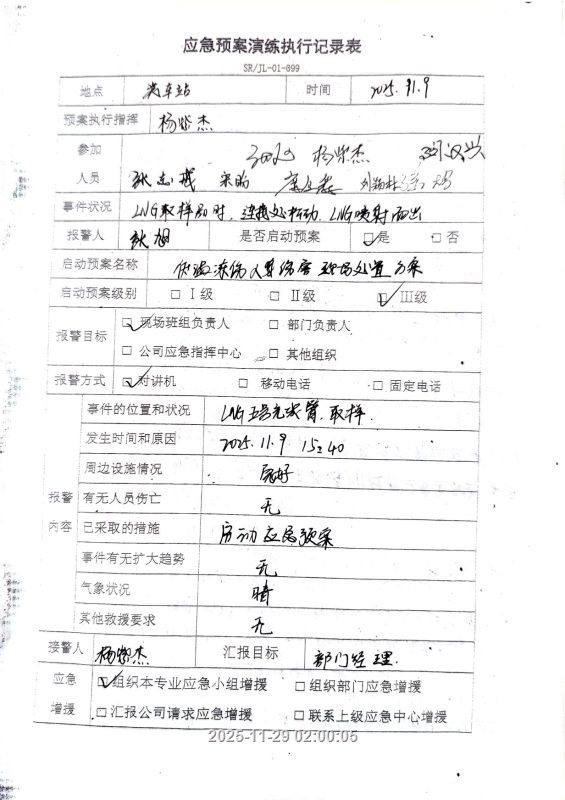 应急预案演练执行记录表
SR/JL-01-099
地点 装车站 时间 2025.11.9
预案执行指挥 杨紫杰
参加 杨紫杰
人员 狄志斌 宋昭
事件状况 LNG取样器时,连接处松动,LNG喷射而出
报警人 狄旭 是否启动预案 ☑是 □否
启动预案名称 低温冻伤人员伤害现场处置方案
启动预案级别 □Ⅰ级 □Ⅱ级 ☑Ⅲ级
报警目标 ☑现场班组负责人 □部门负责人
□公司应急指挥中心 □其他组织
报警方式 ☑对讲机 □移动电话 □固定电话
报警内容
事件的位置和状况 LNG 充装臂.取样.
发生时间和原因 2025.11.9 15:40
周边设施情况 良好
有无人员伤亡 无
已采取的措施 启动应急预案
事件有无扩大趋势 无
气象状况 晴
其他救援要求 无
接警人 杨紫杰 汇报目标 部门经理.
应急增援 ☑组织本专业应急小组增援 □组织部门应急增援
□汇报公司请求应急增援 □联系上级应急中心增援
2025-11-29 02:00:05